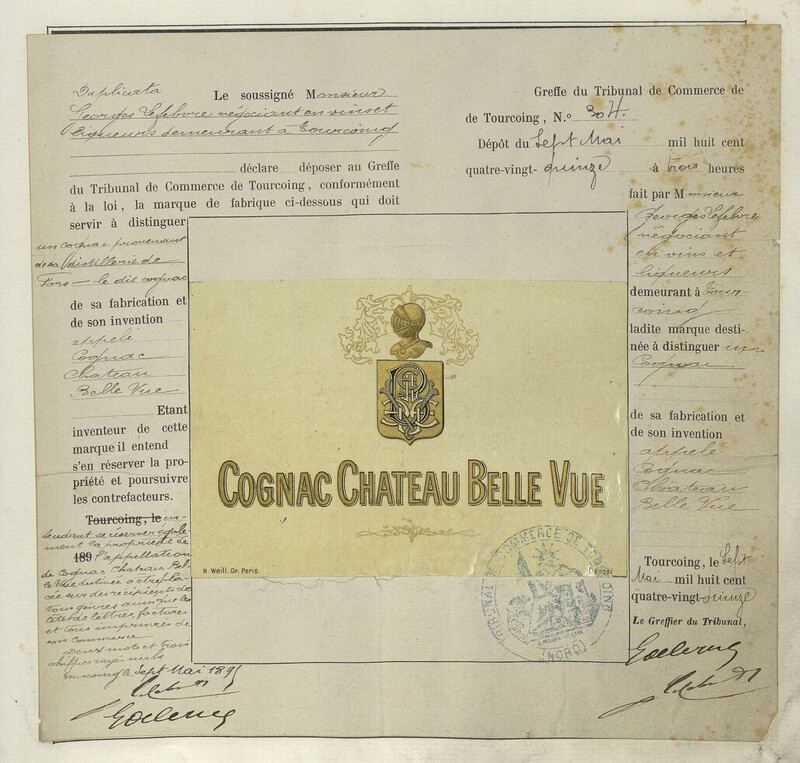 Duplicata
Le soussigné Monsieur
Georges Lefebvre négociant en vins et
liqueurs demeurant à Tourcoing
déclare déposer au Greffe
du Tribunal de Commerce de Tourcoing, conformément
à la loi, la marque de fabrique ci-dessous qui doit
servir à distinguer
un cognac provenant
de sa distillerie de
Fors — le dit cognac
de sa fabrication et
de son invention
appelé
Cognac
Chateau
Belle Vue
Etant
inventeur de cette
marque il entend
s'en réserver la pro-
priété et poursuivre
les contrefacteurs.
Tourcoing, le en-
tendant se réserver égale-
ment la propriété de
189 l'appellation
de Cognac Chateau Bel-
le Vue destinée à être pla-
cée sur des récipients de
tous genres ainsi que les
têtes de lettres, factures
et tous imprimés de
son commerce
Deux mots et trois
chiffres rayés nuls
Tourcoing le Sept Mai 1895
Greffe du Tribunal de Commerce de
de Tourcoing, N.o 304.
Dépôt du Sept Mai mil huit cent
quatre-vingt-quinze à trois heures
fait par Monsieur
Georges Lefebvre
négociant
en vins et
liqueurs
demeurant à Tour-
coing
ladite marque desti-
née à distinguer un
Cognac
de sa fabrication et
de son invention
appelé
Cognac
Chateau
Belle Vue
Tourcoing, le Sept
Mai mil huit cent
quatre-vingt-quinze
Le Greffier du Tribunal,
COGNAC CHATEAU BELLE VUE
N. Weill. Gr. Paris.
Déposé
TRIBUNAL DE COMMERCE DE TOURCOING
(NORD)